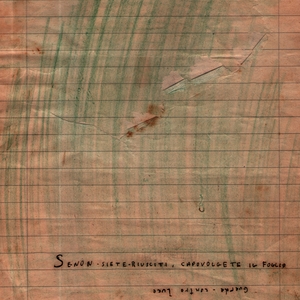 SENON - SIETE - RIUSCITI, CAPOVOLGETE IL FOGLIO
Guarda - contro Luce